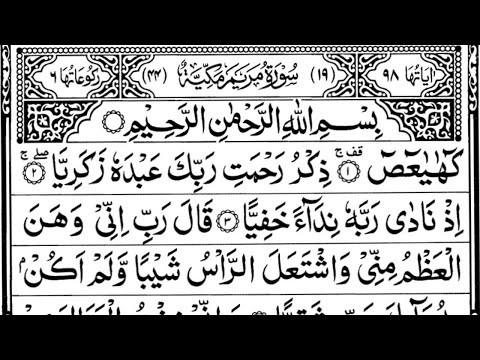 اٰيَاتُهَا ٩٨ (١٩) سُوْرَةُ مَرْيَمَ مَكِّيَّةٌ (٤٤) رُكُوْعَاتُهَا ٦
بِسْمِ اللّٰهِ الرَّحْمٰنِ الرَّحِيْمِ
كٓهٰيٰعٓصٓ ۚ۟ قف ١ ذِكْرُ رَحْمَتِ رَبِّكَ عَبْدَهٗ زَكَرِيَّا ۖۚ ٢
اِذْ نَادٰى رَبَّهٗ نِدَآءً خَفِيًّا ٣ قَالَ رَبِّ اِنِّيْ وَهَنَ
الْعَظْمُ مِنِّيْ وَاشْتَعَلَ الرَّاْسُ شَيْبًا وَّلَمْ اَكُنْۢ